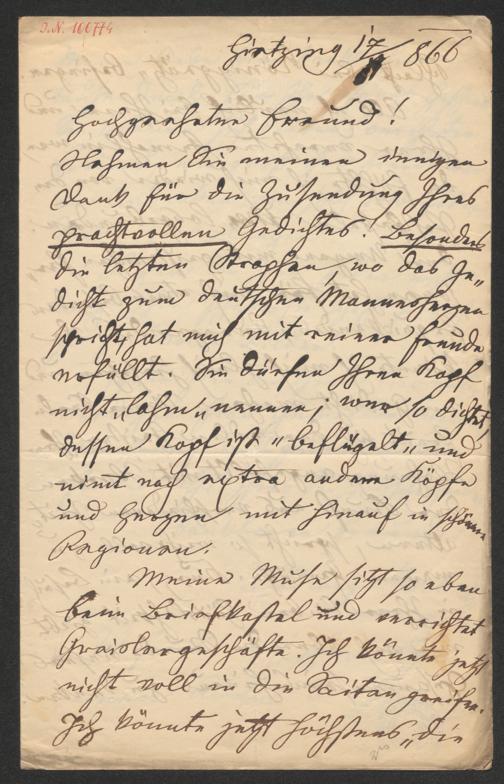 J.N. 166774
Hietzing 17/ 866
Hochgeehrter Freund!
Nehmen Sie meinen innigen
Dank für die Zusendung Ihres
prachtvollen Gedichtes! Besonders
die letzten Strophen, wo das Ge-
dicht zum deutschen Mannesherzen
spricht, hat mich mit reiner Freude
erfüllt. Sie dürfen Ihren Kopf
nicht „lahm" nennen; wer so dichtet,
dessen Kopf ist „beflügelt" und
nimt noch extra andere Köpfe
und Herzen mit hinauf in schönere
Regionen.
Meine Muse sitzt so eben
beim Briefkastel und verrichtet
Graislergeschäfte. Ich könnte jetzt
nicht voll in die Saiten greifen.
Ich könnte jetzt höchstens „die